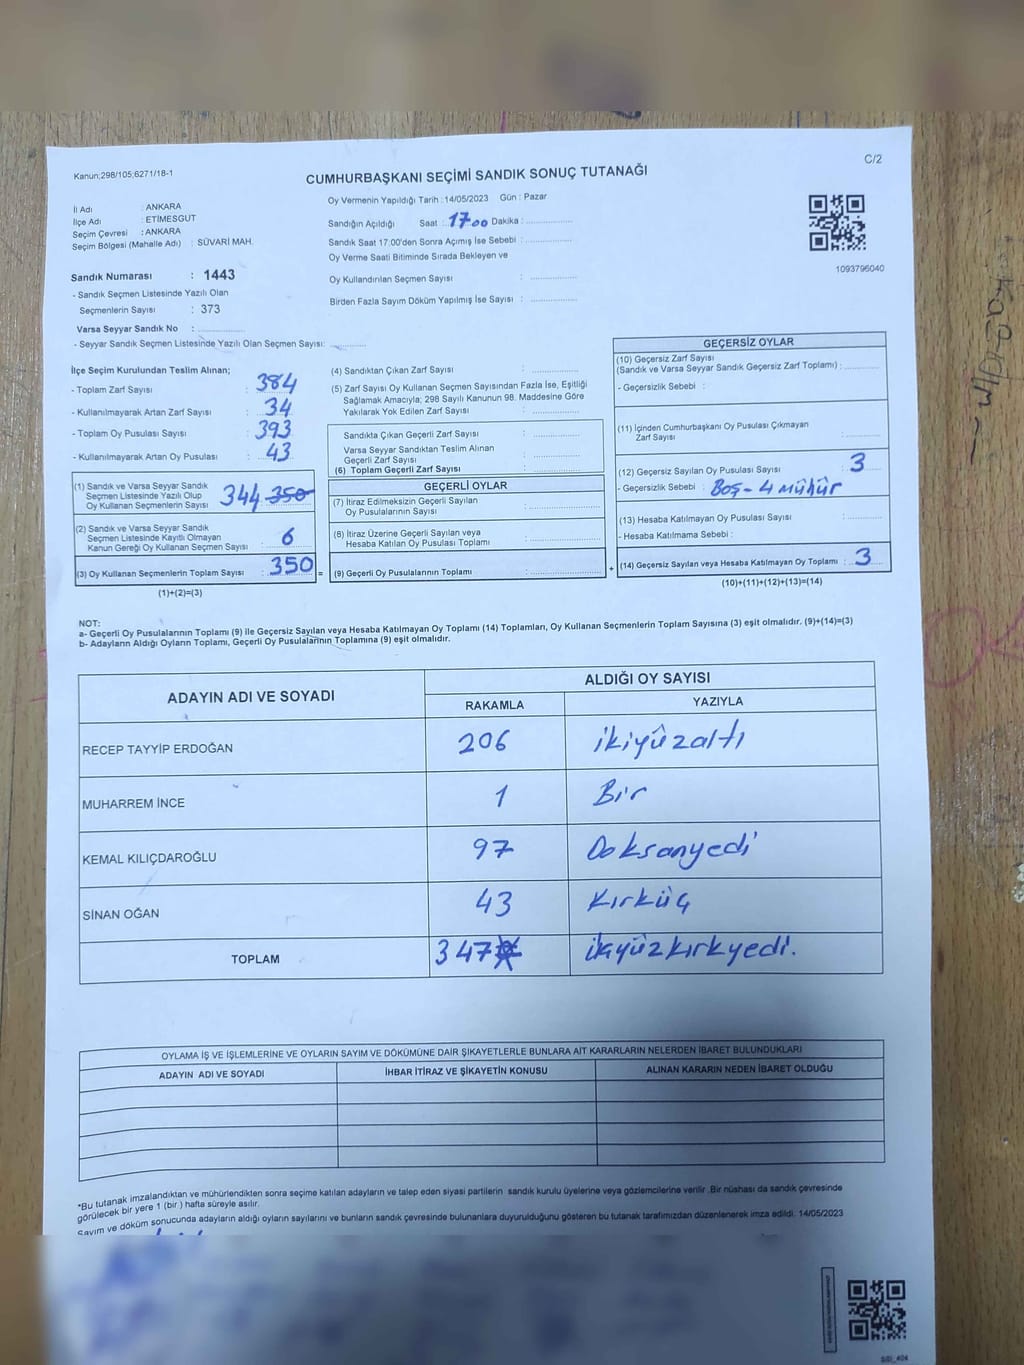 C/2
Kanun;298/105;6271/18-1
CUMHURBAŞKANI SEÇİMİ SANDIK SONUÇ TUTANAĞI
İl Adı : ANKARA
İlçe Adı : ETİMESGUT
Seçim Çevresi : ANKARA
Seçim Bölgesi (Mahalle Adı) : SÜVARİ MAH.
Sandık Numarası : 1443
- Sandık Seçmen Listesinde Yazılı Olan
Seçmenlerin Sayısı : 373
Varsa Seyyar Sandık No :
- Seyyar Sandık Seçmen Listesinde Yazılı Olan Seçmen Sayısı:
Oy Vermenin Yapıldığı Tarih : 14/05/2023 Gün : Pazar
Sandığın Açıldığı Saat : 17 00 Dakika :
Sandık Saat 17.00'den Sonra Açımış İse Sebebi :
Oy Verme Saati Bitiminde Sırada Bekleyen ve
Oy Kullandırılan Seçmen Sayısı :
Birden Fazla Sayım Döküm Yapılmış İse Sayısı :
1093796040
İlçe Seçim Kurulundan Teslim Alınan;
- Toplam Zarf Sayısı : 384
- Kullanılmayarak Artan Zarf Sayısı : 34
- Toplam Oy Pusulası Sayısı : 393
- Kullanılmayarak Artan Oy Pusulası : 43
(1) Sandık ve Varsa Seyyar Sandık
Seçmen Listesinde Yazılı Olup
Oy Kullanan Seçmenlerin Sayısı : 344 350
(2) Sandık ve Varsa Seyyar Sandık
Seçmen Listesinde Kayıtlı Olmayan
Kanun Gereği Oy Kullanan Seçmen Sayısı : 6
(3) Oy Kullanan Seçmenlerin Toplam Sayısı : 350 =
(1)+(2)=(3)
(4) Sandıktan Çıkan Zarf Sayısı :
(5) Zarf Sayısı Oy Kullanan Seçmen Sayısından Fazla İse, Eşitliği
Sağlamak Amacıyla; 298 Sayılı Kanunun 98. Maddesine Göre
Yakılarak Yok Edilen Zarf Sayısı :
Sandıkta Çıkan Geçerli Zarf Sayısı :
Varsa Seyyar Sandıktan Teslim Alınan
Geçerli Zarf Sayısı :
(6) Toplam Geçerli Zarf Sayısı :
GEÇERLİ OYLAR
(7) İtiraz Edilmeksizin Geçerli Sayılan
Oy Pusulalarının Sayısı :
(8) İtiraz Üzerine Geçerli Sayılan veya
Hesaba Katılan Oy Pusulası Toplamı :
(9) Geçerli Oy Pusulalarının Toplamı : +
GEÇERSİZ OYLAR
(10) Geçersiz Zarf Sayısı
(Sandık ve Varsa Seyyar Sandık Geçersiz Zarf Toplamı) :
- Geçersizlik Sebebi :
(11) İçinden Cumhurbaşkanı Oy Pusulası Çıkmayan
Zarf Sayısı :
(12) Geçersiz Sayılan Oy Pusulası Sayısı : 3
- Geçersizlik Sebebi : Boş - 4 mühür
(13) Hesaba Katılmayan Oy Pusulası Sayısı :
- Hesaba Katılmama Sebebi :
(14) Geçersiz Sayılan veya Hesaba Katılmayan Oy Toplamı : 3
(10)+(11)+(12)+(13)=(14)
NOT:
a- Geçerli Oy Pusulalarının Toplamı (9) ile Geçersiz Sayılan veya Hesaba Katılmayan Oy Toplamı (14) Toplamları, Oy Kullanan Seçmenlerin Toplam Sayısına (3) eşit olmalıdır. (9)+(14)=(3)
b- Adayların Aldığı Oyların Toplamı, Geçerli Oy Pusulalarının Toplamına (9) eşit olmalıdır.
ADAYIN ADI VE SOYADI
ALDIĞI OY SAYISI
RAKAMLA YAZIYLA
RECEP TAYYİP ERDOĞAN 206 ikiyüzaltı
MUHARREM İNCE 1 Bir
KEMAL KILIÇDAROĞLU 97 Doksanyedi
SİNAN OĞAN 43 Kırküç
TOPLAM 347 üçyüzkırkyedi.
OYLAMA İŞ VE İŞLEMLERİNE VE OYLARIN SAYIM VE DÖKÜMÜNE DAİR ŞİKAYETLERLE BUNLARA AİT KARARLARIN NELERDEN İBARET BULUNDUKLARI
ADAYIN ADI VE SOYADI İHBAR İTİRAZ VE ŞİKAYETİN KONUSU ALINAN KARARIN NEDEN İBARET OLDUĞU
*Bu tutanak imzalandıktan ve mühürlendikten sonra seçime katılan adayların ve talep eden siyasi partilerin sandık kurulu üyelerine veya gözlemcilerine verilir .Bir nüshası da sandık çevresinde
görülecek bir yere 1 (bir ) hafta süreyle asılır.
Sayım ve döküm sonucunda adayların aldığı oyların sayılarını ve bunların sandık çevresinde bulunanlara duyurulduğunu gösteren bu tutanak tarafımızdan düzenlenerek imza edildi. 14/05/2023